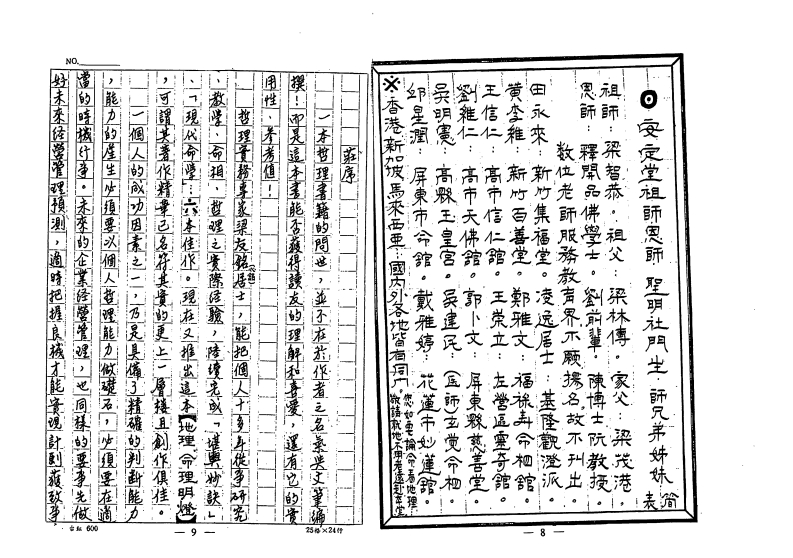 ◎安定堂祖師恩師 聖明社門生 師兄弟姊妹簡表
祖師：梁智恭。祖父：梁林傳。家父：梁茂港。
恩師：釋開品佛學士。劉前輩。陳博士阮教授。
數位老師服務教育界不願攘名故不刊出。
田永來：新竹集福堂。凌逸居士：基隆觀澄派。
黃李維 新竹百善堂。鄭雅文：福緣壽命相舘。
王信仁：高市信仁舘。王崇立：左營區靈奇舘。
劉維仁：高市天佛舘。郭卜文：屏東縣慈善堂。
吳明憲：高縣玉皇宮。吳建民：(金師)玉覺命相。
邱星潤：屏東市命舘。戴雅婷：花蓮市妙蓮舘。
※香港新加坡馬來西亞：國內外各地皆有同門。
您如要論命看地理
敬請就地不用老遠到本堂
— 8 —
NO.
莊序
一本哲理書籍的問世，並不在於作者之名氣與文筆編
撰！而是這本書能否獲得讀友的理解和喜愛，還有它的實
用性、參考值！
哲理實務專家梁友銘居士，能把個人十多年從事研究
、教學、命相、哲理之實際經驗，陸續完成「堪輿妙訣」
、「現代命學…六本佳作。現在又推出這本【地理命理明燈】
，可謂其著作精華已名符其實的更上一層樓且創作俱佳。
一個人的成功因素之一，乃是具備了精確的判斷能力
，能力的產生必須要以個人哲理能力做礎石，必須要在適
當的時機行事。未來的企業經營管理，也同樣的要事先做
好未來經營管理預測，適時把握良機才能實現計劃獲致事
台紅 600
— 9 —
25格×24行